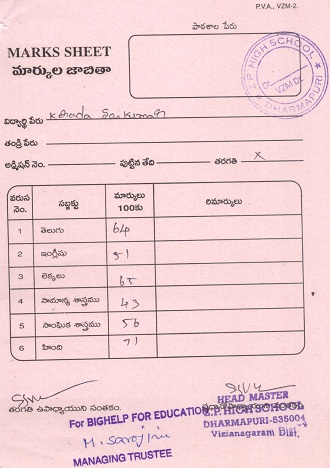 P.V.A., VZM-2.
పాఠశాల పేరు
MARKS SHEET
మార్కుల జాబితా
Z.P. HIGH SCHOOL
VZM DL
DHARMAPURI
విద్యార్థి పేరు Kotada Saikumar
తండ్రి పేరు
అడ్మిషన్ నెం. పుట్టిన తేది తరగతి X
వరుస నెం. సబ్జక్టు మార్కులు 100కు రిమార్కులు
1 తెలుగు 64
2 ఇంగ్లీషు 51
3 లెక్కలు 65
4 సామాన్య శాస్త్రము 43
5 సాంఘిక శాస్త్రము 56
6 హింది 71
తరగతి ఉపాధ్యాయుని సంతకం.
HEAD MASTER
Z.P. HIGH SCHOOL
DHARMAPURI-535004
Vizianagaram Dist.
For BIGHELP FOR EDUCATION
M. Sarojini
MANAGING TRUSTEE